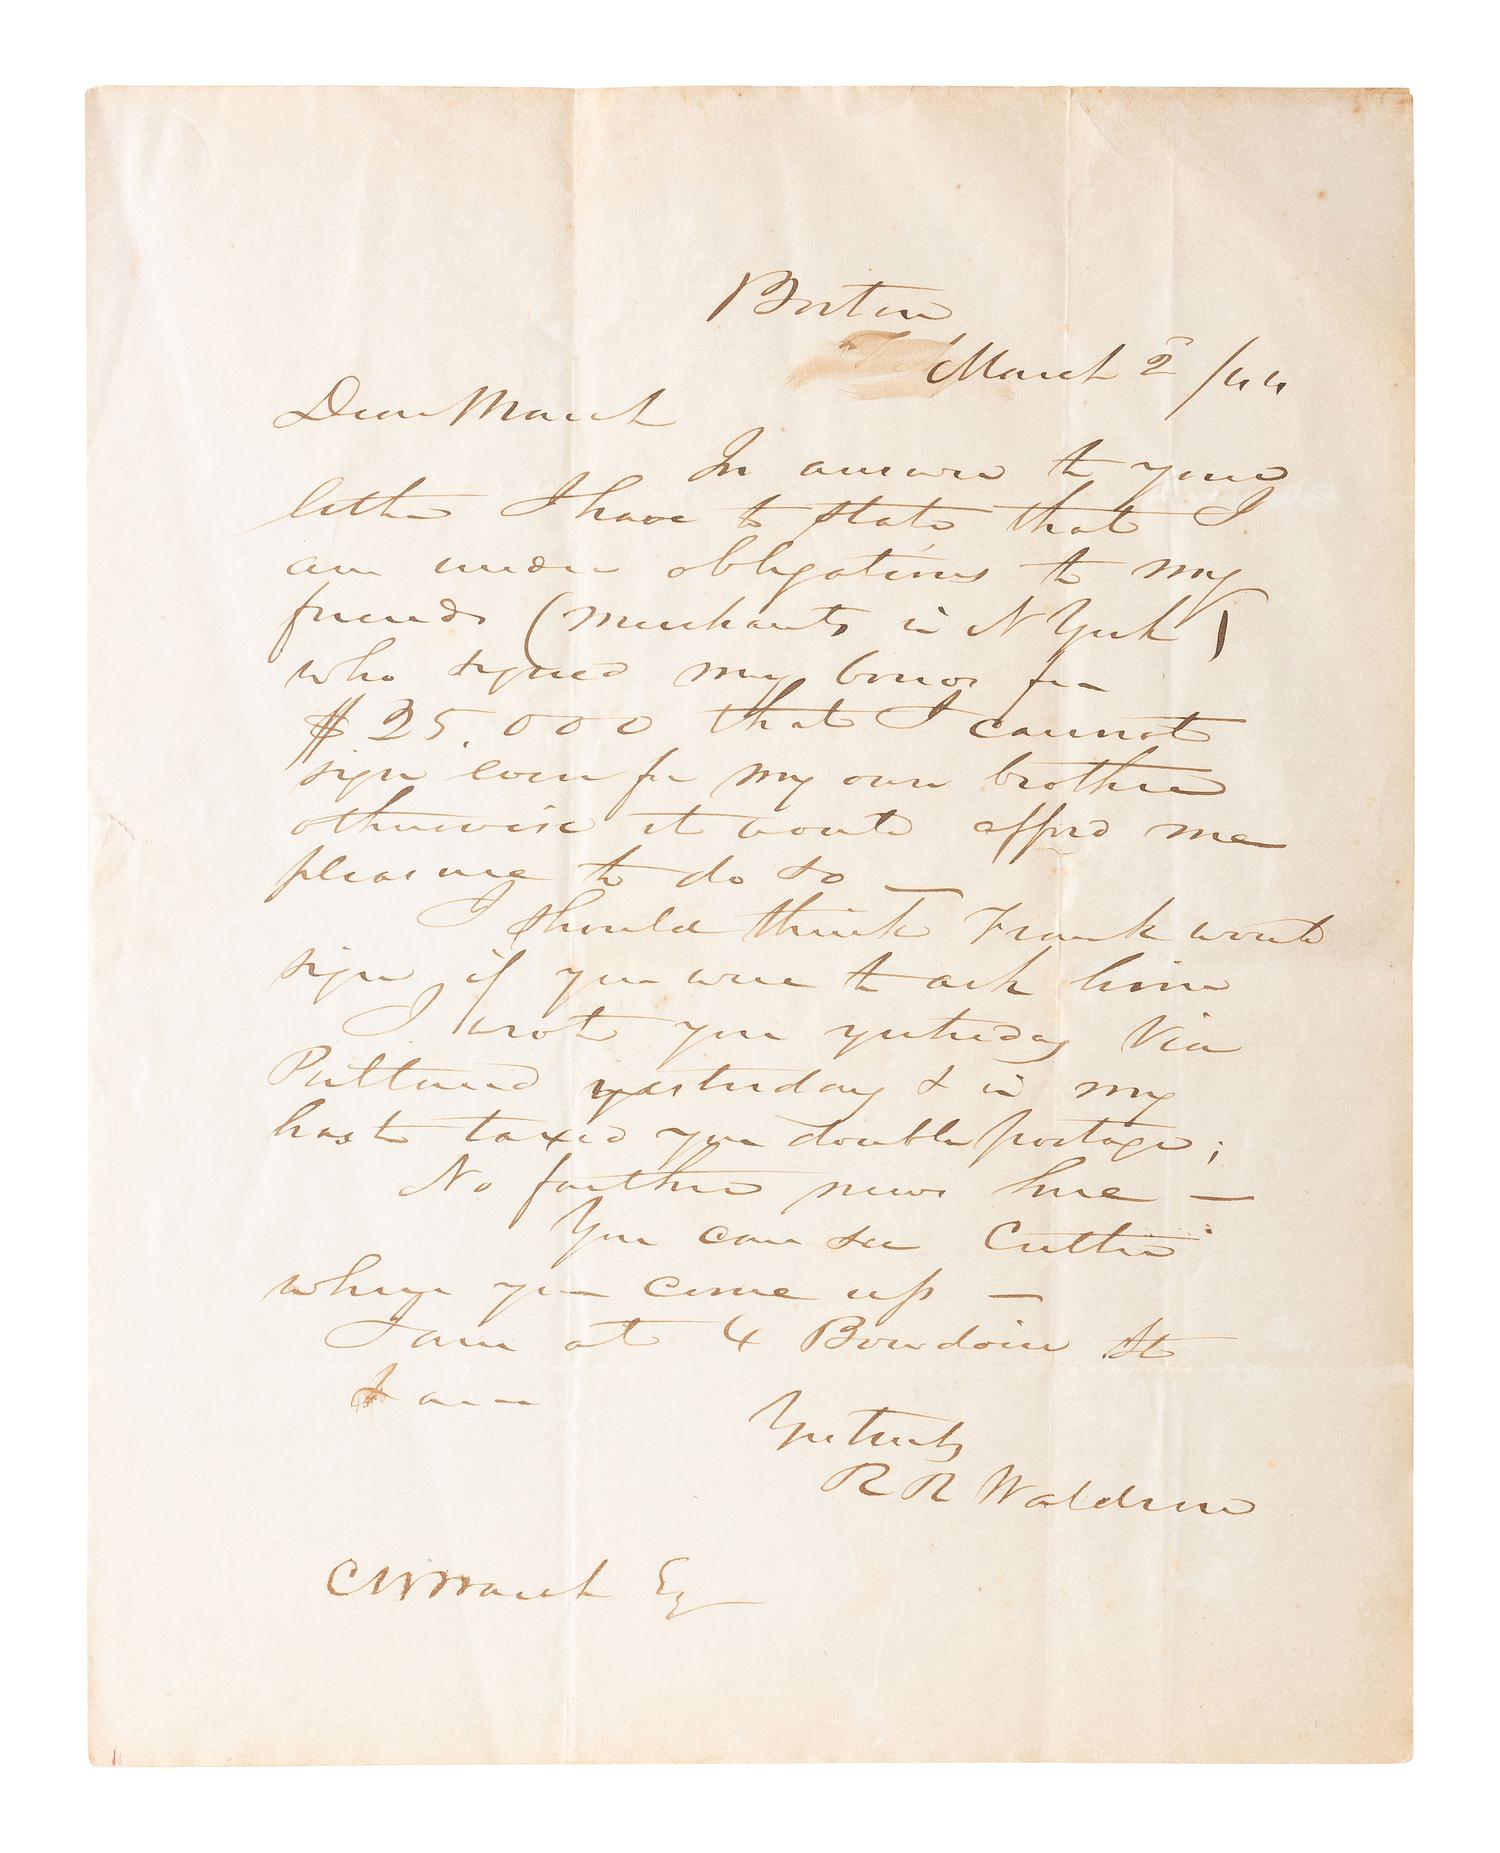 Boston
March 2 /44
Dear March
In answer to your
letter I have to state that I
am under obligations to my
friends (merchants in N York)
who signed my bond for
$25.000 that I cannot
sign even for my own brother
otherwise it would afford me
pleasure to do so —
I should think Frank would
sign if you were to ask him
I wrote you yesterday Via
Portland yesterday & in my
haste taxed you double postage;
No further news here —
You can see Cutter
when you come up —
I am at 4 Bowdoin St
I am
Yrs truly
R R Waldron
C W March Esq